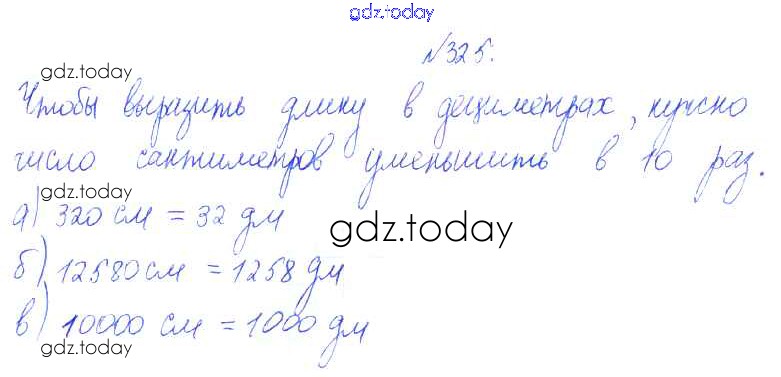 gdz.today
№325.
gdz.today
Чтобы выразить длину в дециметрах, нужно
число сантиметров уменьшить в 10 раз.
gdz.today
а) 320 см = 32 дм
gdz.today
б) 12580 см = 1258 дм
в) 10000 см = 1000 дм
gdz.today